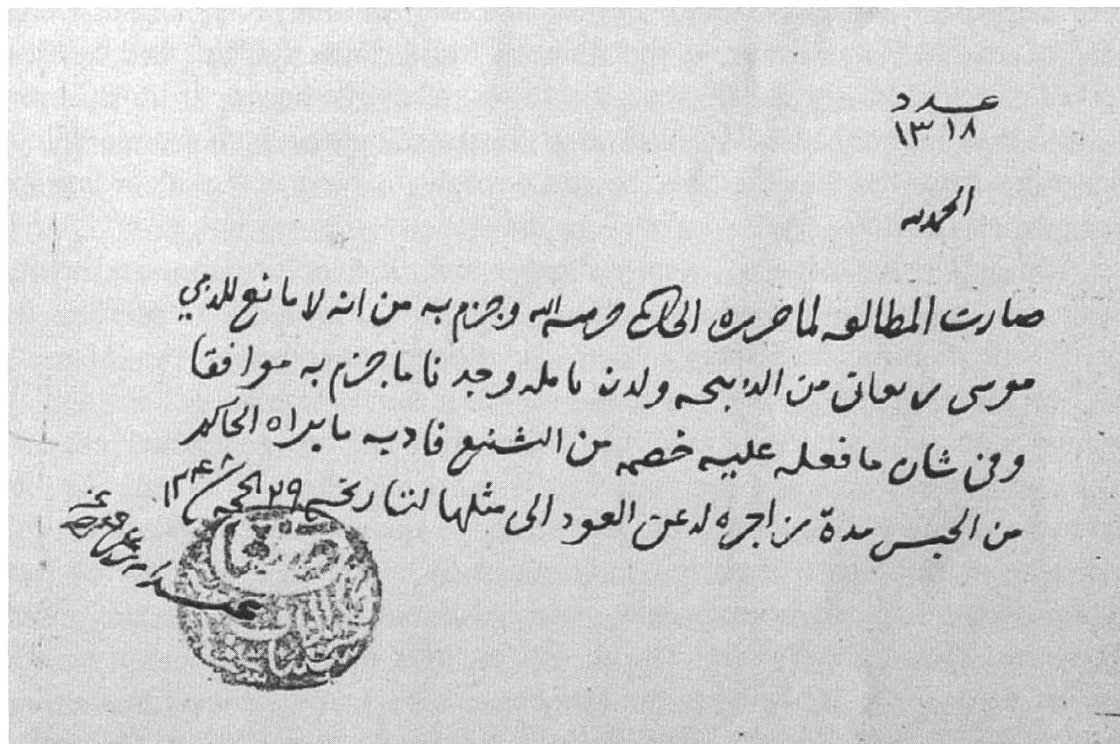 عدد
١٣١٨
الحمد لله
صارت المطالعه لما حرره الحاكم حرسه الله وجزم به من انه لا مانع للذمي
موسى من الذبيحه ولدن تامله وجدنا ما جزم به موافقا
وفي شان ما فعله عليه خصمه من الشنيع فادبه ما يراه الحاكم
من الحبس مدة زاجره له عن العود الى مثلها لتاريخه ٢٩ الحجه